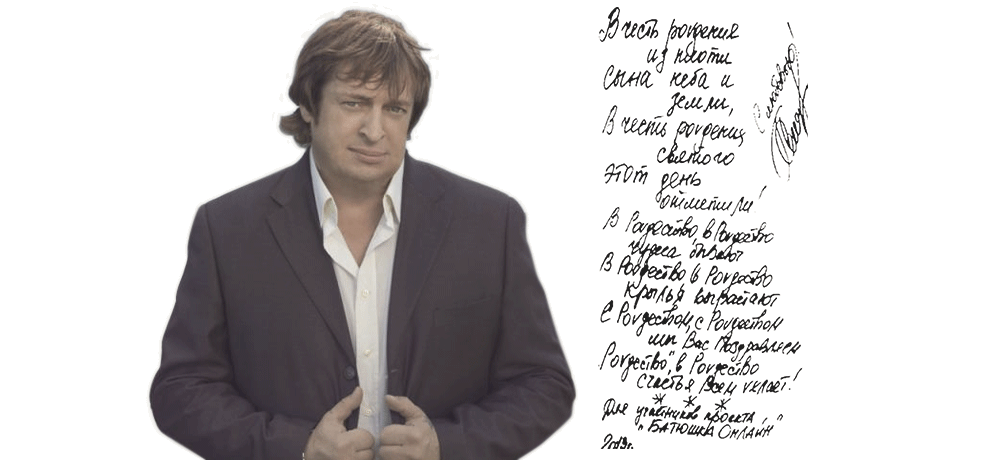 В честь рождения
из плоти
Сына неба и
земли,
В честь рождения
святого
этот день
отметили!
В Рождество, в Рождество
чудеса бывают
В Рождество в Рождество
крылья вырастают
С Рождеством, с Рождеством
мы Вас Поздравляем
Рождество", в Рождество
счастья Всем желает!
* * *
Для участников проекта
"БАТЮШКА ОНЛАЙН"
С любовью!